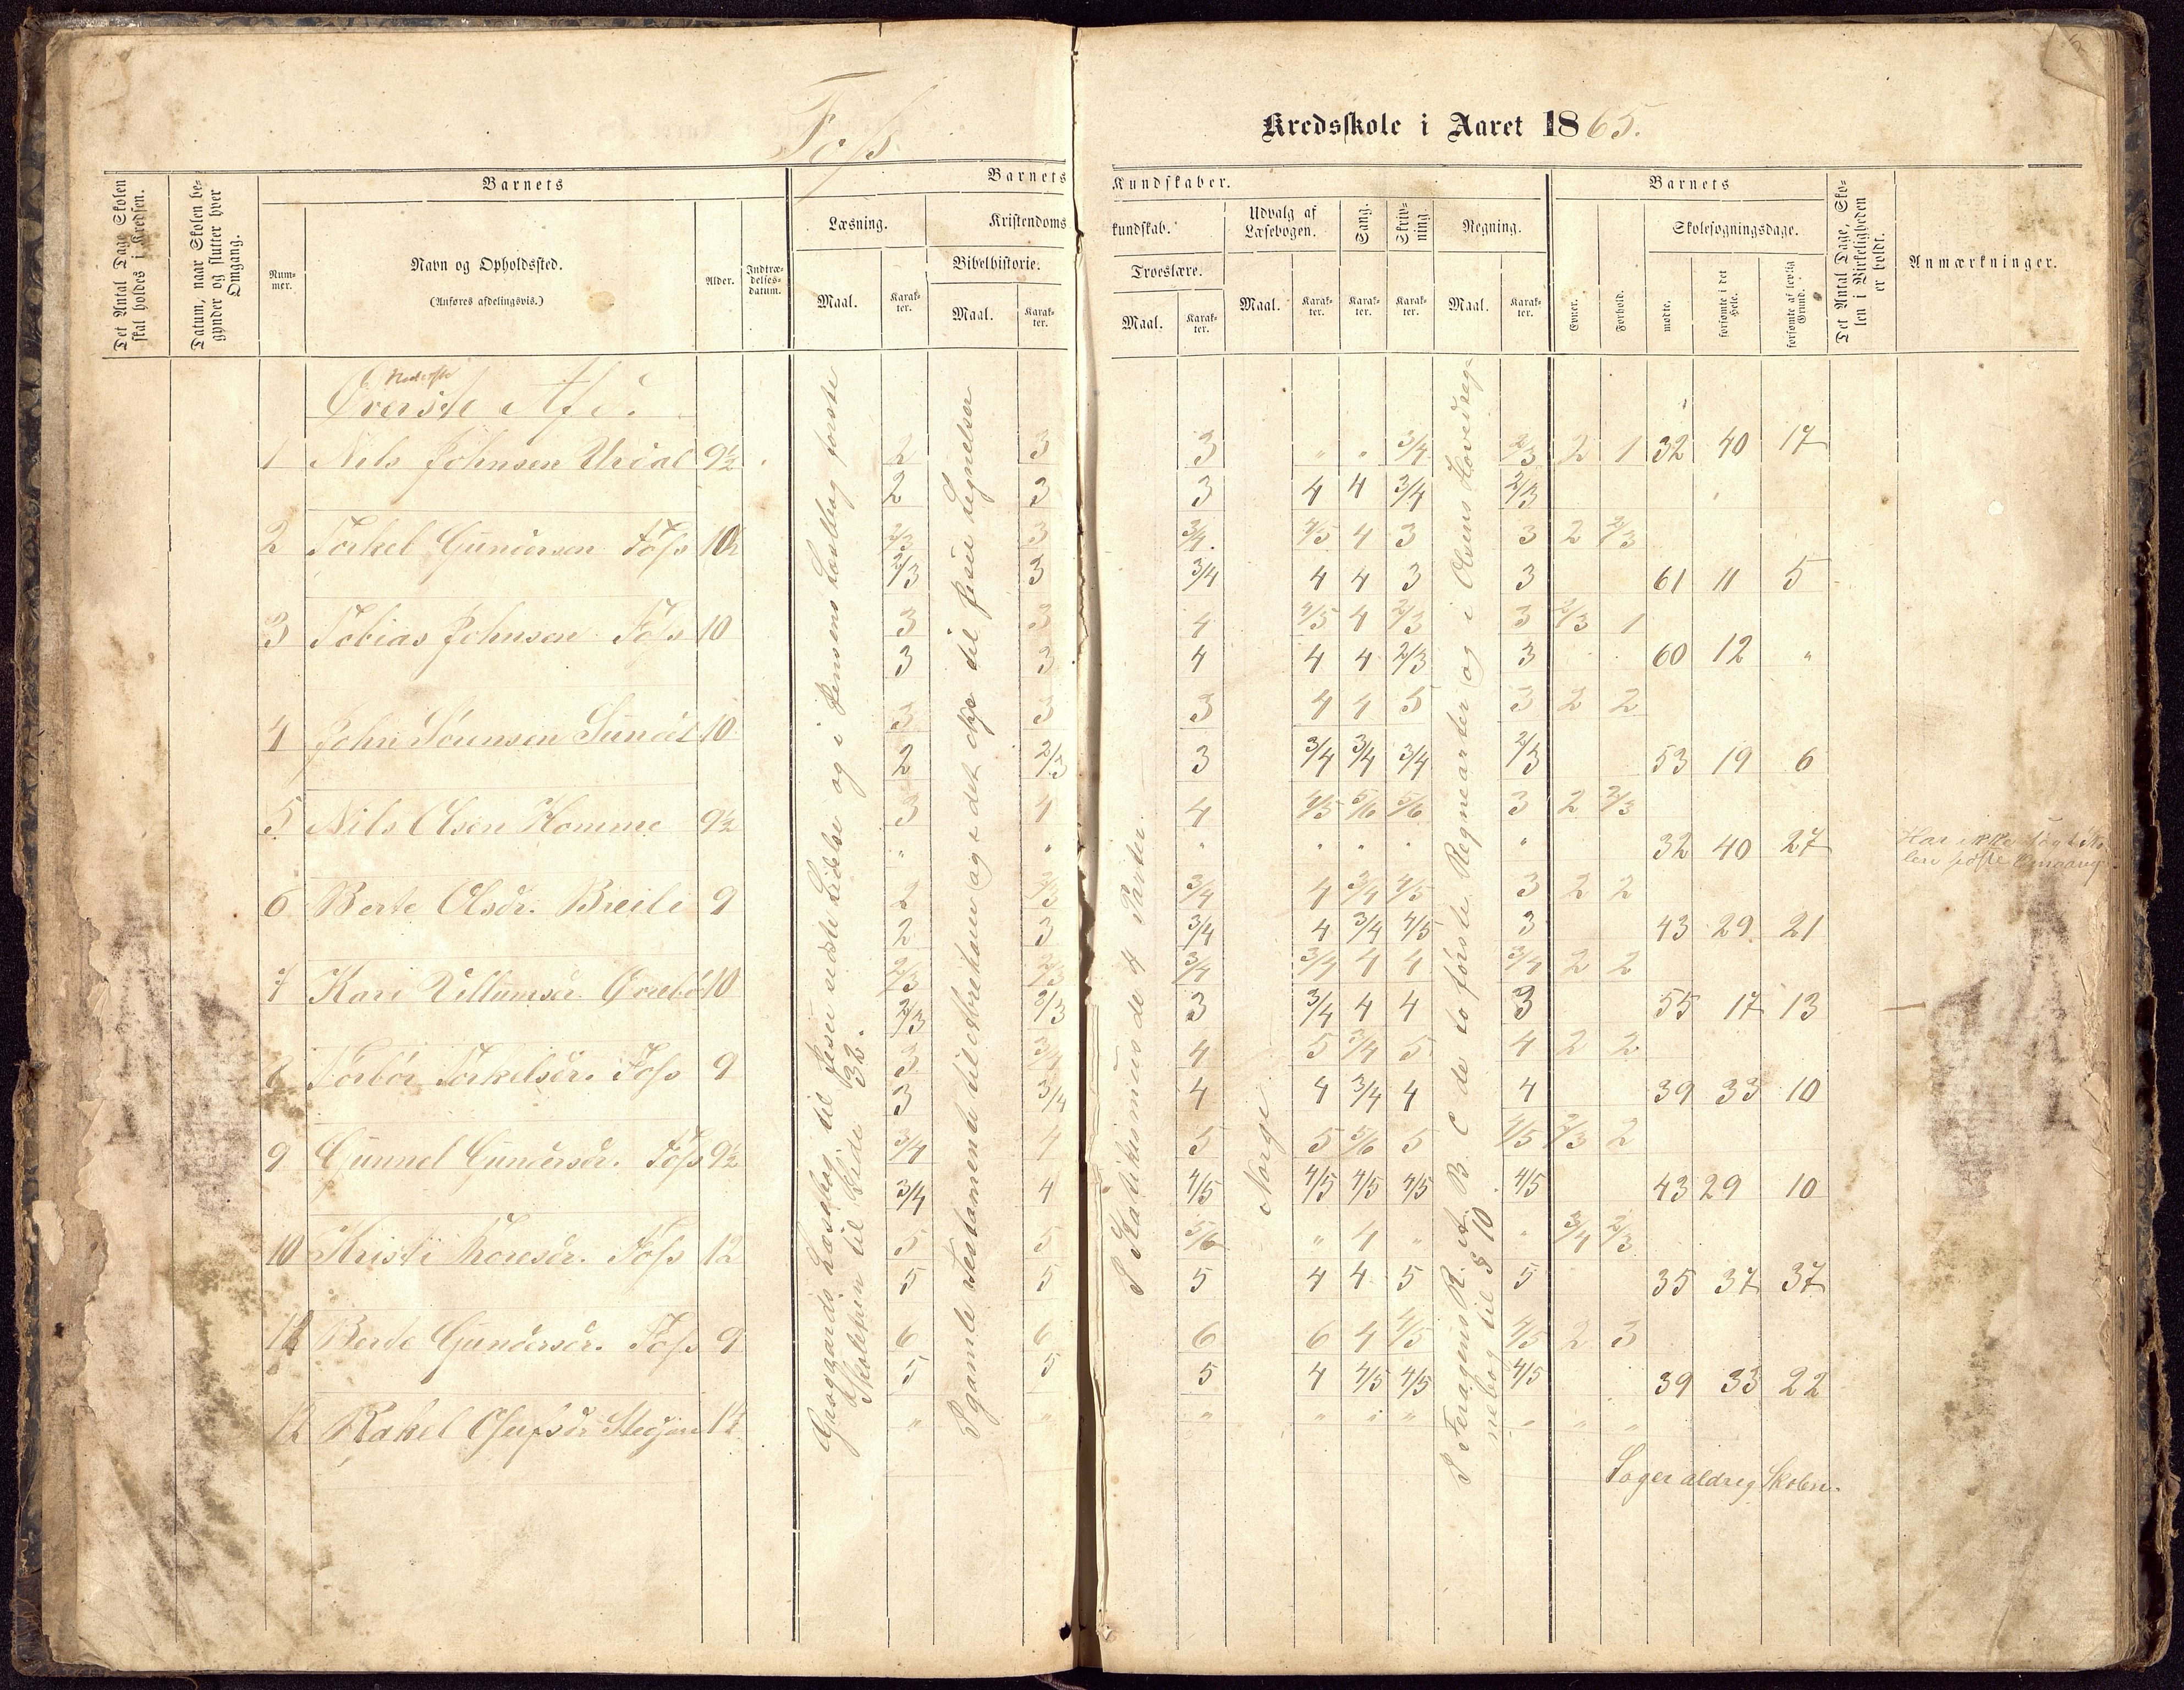 Foss Kredsskole i Aaret 1865.
Det Antal Dage Skolen skal holdes i Kredsen.
Datum, naar Skolen begynder og slutter hver Omgang.
Barnets
Nummer.
Navn og Opholdssted.
(Anføres afdelingsvis.)
Alder.
Indtrædelsesdatum.
Barnets Kundskaber.
Læsning.
Maal.
Karakter.
Kristendomskundskab.
Bibelhistorie.
Maal.
Karakter.
Troeslære.
Maal.
Karakter.
Udvalg af Læsebogen.
Maal.
Karakter.
Sang.
Karakter.
Skrivning.
Karakter.
Regning.
Maal.
Karakter.
Barnets
Evner.
Forhold.
Skolesøgningsdage.
mødte.
forsømte i det Hele.
forsømte af lovlig Grund.
Det Antal Dage, Skolen i Virkeligheden er holdt.
Anmærkninger.
Nederste
Øverste Afd.
1 Nils Johnsen Urdal 9½ 2 3 3 " " 3/4 2/3 2 1 32 40 17
2 3 3 4 4 3/4 2/3
2 Torkel Gundersen Foss 10½ 2/3 3 3/4 4/5 4 3 3 2 2/3
2/3 3 3/4 4 4 3 3 61 11 5
3 Tobias Johnsen Foss 10 3 3 4 4/5 4 2/3 3 2/3 1
3 3 4 4 4 2/3 3 60 12 "
4 John Sørensen 10 3 3 3 4 4 5 3 2 2
2 2/3 3 3/4 3/4 3/4 2/3 53 19 6
5 Nils Olsen Homme 9½ 3 4 4 4/5 5/6 5/6 3 2 2/3
" " " " " " " 32 40 27 Har ikke søgt Skolen sidste Omgang
6 Berte Olsdr. Breili 9 2 2/3 3/4 4 3/4 4/5 3 2 2
2 3 3/4 4 3/4 4/5 3 43 29 21
7 Kari Villumsdr. 10 2/3 2/3 3/4 3/4 4 4 3/4 2 2
2/3 2/3 3 3/4 4 4 3 55 17 13
8 Torbør Torkelsdr. Foss 9 3 3/4 4 5 3/4 5 4 2 2
3 3/4 4 4 3/4 4 4 39 33 10
9 Gunnel Gundersdr. Foss 9½ 3/4 4 5 5 5/6 5 4/5 2/3 2
3/4 4 4/5 4/5 4/5 4/5 4/5 43 29 10
10 Kristi Thoresdr. Foss 12 5 5 5/6 " 4 " " 3/4 2/3
5 5 5 4 4 5 5 35 37 37
11 Berte Gundersdr. Foss 9 6 6 6 6 4 4/5 4/5 2 3
5 5 5 4 4/5 4/5 4/5 39 33 22
12 Rakel " " " " " " " " "
Søger aldrig Skolen.
Læsebog til Jesu sidste Lidelse og i Jensens Læsebog første
Skoletrin til Side 32.
I gamle Testamente til Abraham og i det nye til Jesu Lignelser
I Katekismus de 4 Parter.
Norge
I Feragens R. A. B. C de to første Regnearter og i Olsens Hovedregnebog til § 10